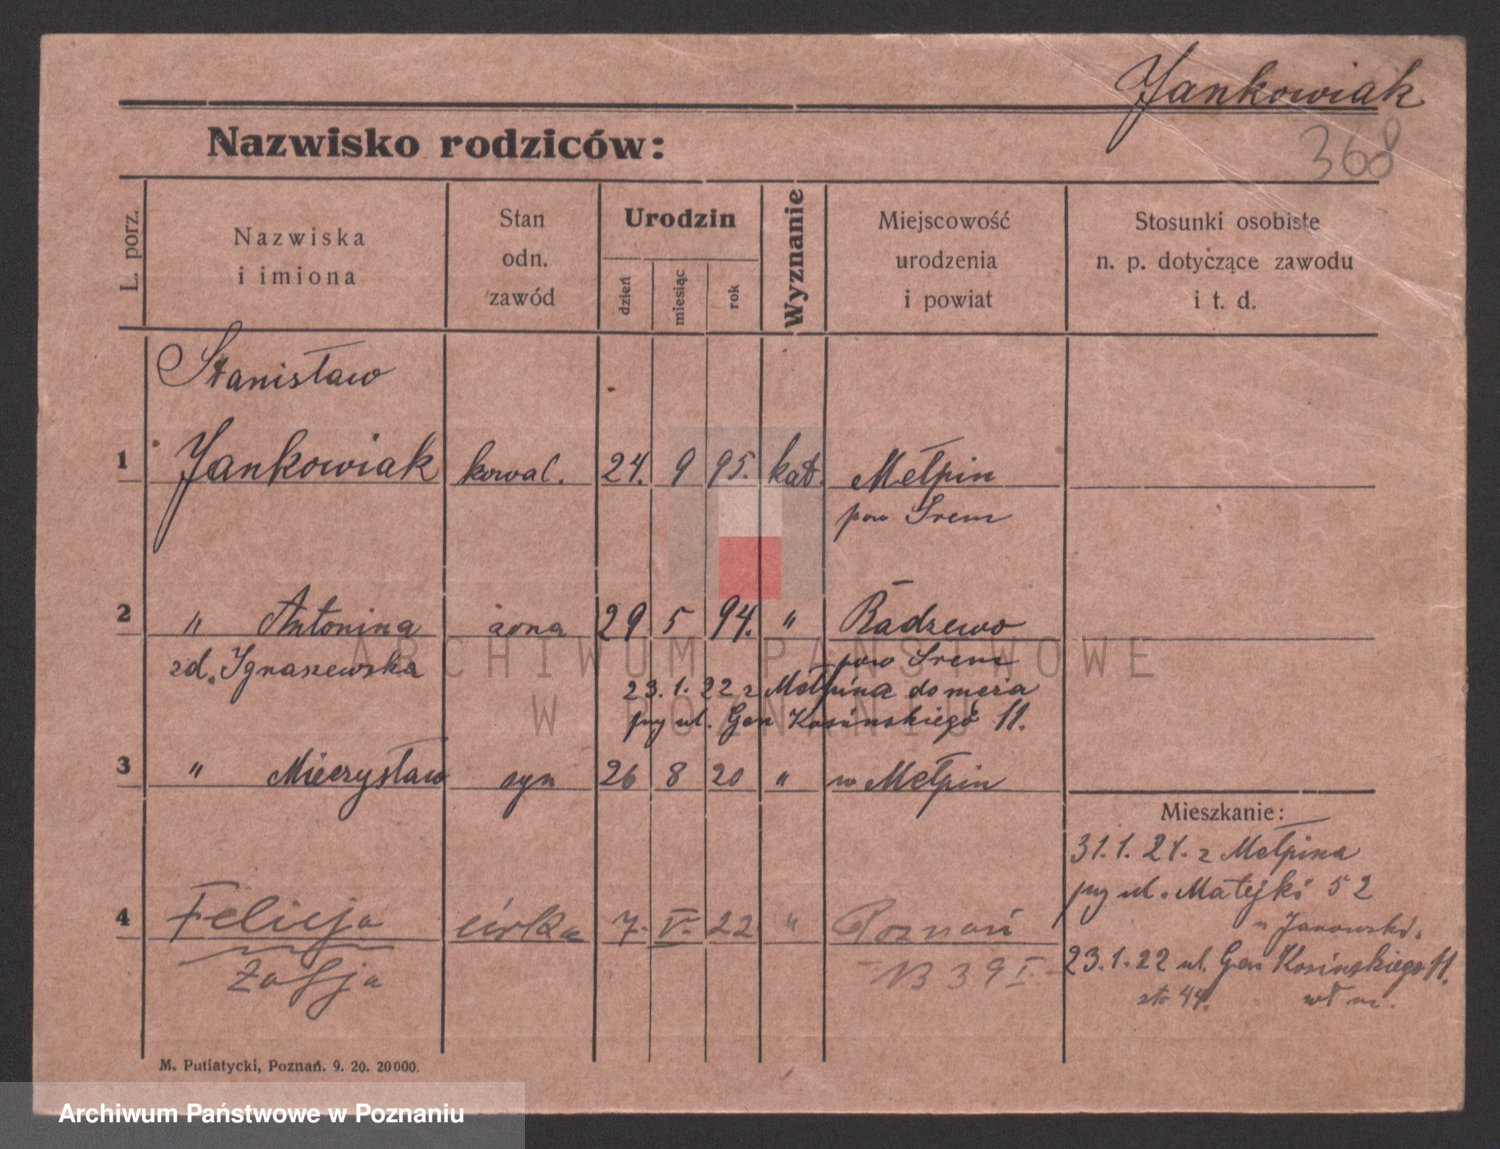 Jankowiak
368
Nazwisko rodziców:
L. porz.
Nazwiska
i imiona
Stan
odn.
zawód
Urodzin
dzień
miesiąc
rok
Wyznanie
Miejscowość
urodzenia
i powiat
Stosunki osobiste
n. p. dotyczące zawodu
i t. d.
Stanisław
1 Jankowiak kowal. 24. 9 95. kat. Mełpin
pow Śrem
2 " Antonina żona 29 5 94. " Radzewo
zd. Ignaszewska pow Śrem
23.1.22 z Mełpina do męża
przy ul. Gen Kosińskiego 11.
3 " Mieczysław syn 26 8 20 " w Mełpin
Mieszkanie:
31.1.21. z Mełpina
przy ul. Matejki 52
4 Felicja córka 7. V. 22 " Poznań
Zofja
N 39 I
u Janowski.
23.1.22 ul. Gen Kosińskiego 11.
str 44.
M. Putiatycki, Poznań. 9. 20. 20000.
ARCHIWUM PAŃSTWOWE
W POZNANIU
Archiwum Państwowe w Poznaniu